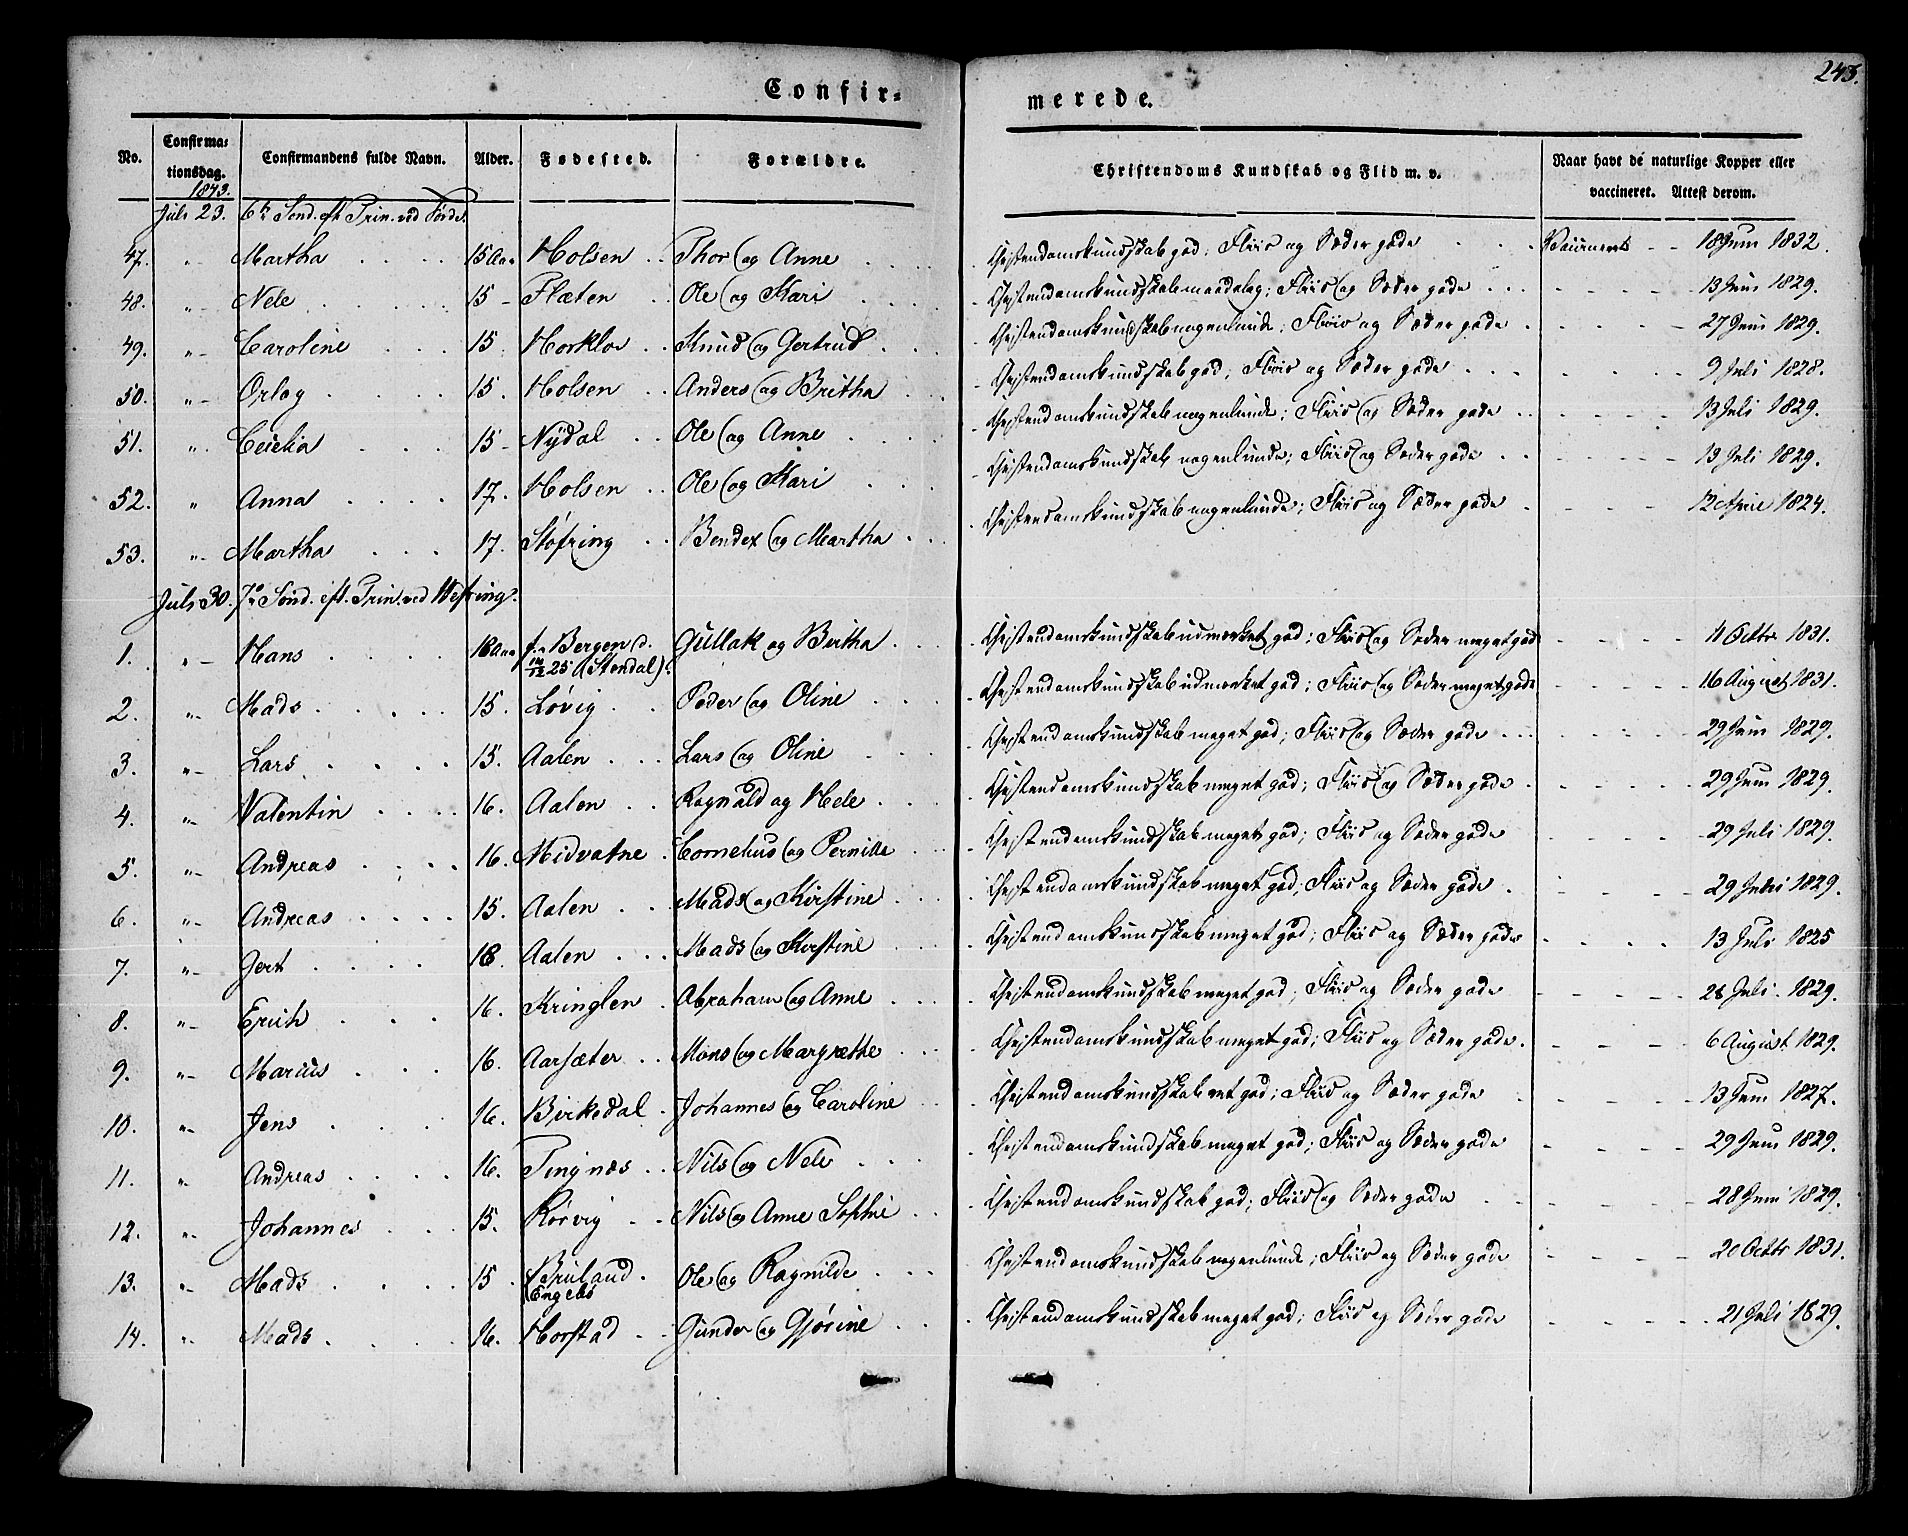 Confir-
merede.
243.
No. Confirmationsdag. Confirmandens fulde Navn. Alder. Fødested. Forældre. Christendoms Kundskab og Flid m. v. Naar havt de naturlige Kopper eller vaccineret. Attest derom.
1843.
Juli 23. 6te Sønd. eft. Trin. ved Førde.
47. " Martha 15 Aar Holsen Thor og Anne Christendomskundskab god; Fliis og Sæder gode Vaccineret 18 Juni 1832.
48. " Nele 15 Flæten Ole og Kari Christendomskundskab maadelig; Fliis og Sæder gode 13 Juni 1829.
49. " Caroline 15 Horklov Knud og Gertrud Christendomskundskab nogenlunde; Fliis og Sæder gode 27 Juni 1829.
50. " Orlog 15. Holsen Anders og Britha Christendomskundskab god; Fliis og Sæder gode 9 Juli 1828.
51. " Cecelia 15 Nydal Ole og Anne Christendomskundskab nogenlunde; Fliis og Sæder gode 13 Juli 1829.
52. " Anna 17. Holsen Ole og Kari Christendomskundskab nogenlunde; Fliis og Sæder gode 13 Juli 1829.
53. " Martha 17. Støfring Bendex og Martha Christendomskundskab nogenlunde; Fliis og Sæder gode 12 April 1824.
Juli 30. 7de Sønd. eft. Trin. ved Wefring.
1. " Hans 18 Aar f. Bergen d. 14/12 25 (Stendal). Gullak og Birtha Christendomskundskab udmerket god; Fliis og Sæder meget gode 11 Octbr 1831.
2. " Mads 15. Løvig Peder og Oline Christendomskundskab udmerket god; Fliis og Sæder meget gode 16 August 1831.
3. " Lars 15. Aalen Lars og Oline Christendomskundskab meget god; Fliis og Sæder gode 29 Juni 1829.
4. " Valentin 16. Aalen Ragnald og Hele Christendomskundskab meget god; Fliis og Sæder gode 29 Juni 1829.
5. " Andreas 16. Midvatne Cornelius og Pernille Christendomskundskab meget god; Fliis og Sæder gode 29 Juli 1829.
6. " Andreas 15. Aalen Mads og Kirstine Christendomskundskab meget god; Fliis og Sæder gode 29 Juli 1829.
7. " Gert 18 Aalen Mads og Kirstine Christendomskundskab meget god; Fliis og Sæder gode 13 Juli 1825
8. " Erich 16. Kringlen Abraham og Anne Christendomskundskab meget god; Fliis og Sæder gode 28 Juli 1829.
9. " Marius 16. Aarsæter Mons og Margrethe Christendomskundskab meget god; Fliis og Sæder gode. 6 August 1829.
10. " Jens 16. Birkedal Johannes og Caroline Christendomskundskab ret god; Fliis og Sæder gode 13 Juni 1827.
11. " Andreas 16. Tingnæs Nils og Nele Christendomskundskab meget god; Fliis og Sæder gode 29 Juni 1829.
12. " Johannes 15. Rørvig Nils og Anne Sophie Christendomskundskab god; Fliis og Sæder gode 28 Juni 1829.
13. " Mads 15 Bruland Engebø Ole og Ragnilde Christendomskundskab nogenlunde; Fliis og Sæder gode 20 Octbr 1831.
14. " Mads 16. Horstad Gunder og Gjørine Christendomskundskab meget god; Fliis og Sæder gode 21 Juli 1829.